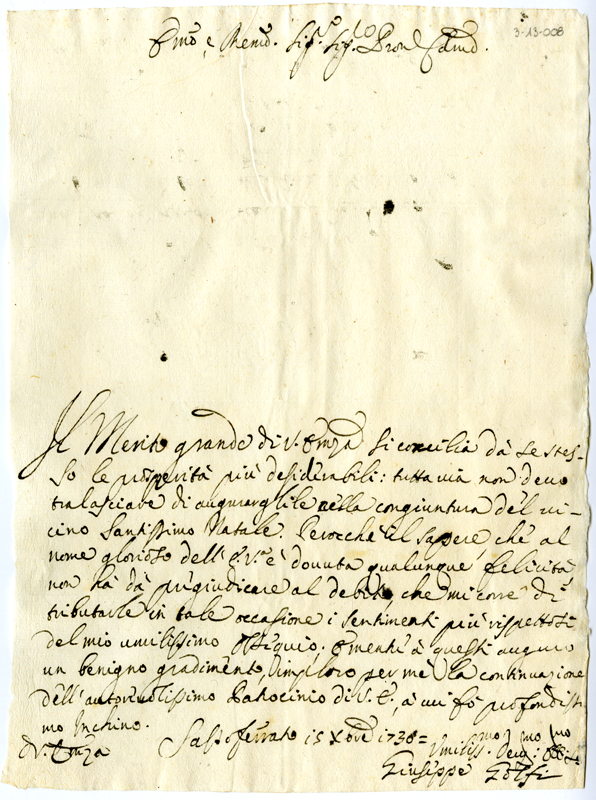 3-13-008
Emo, e Remo. Sigr. Sigr. Pron. Colmo.
Il Merito grande di V. Emza si concilia dà se stes-
so le prosperità più desiderabili: tuttavia non devo
tralasciare di augurargliele nella congiuntura del vi-
cino Santissimo Natale. Perocchè il sapere, che al
nome glorioso dell' E. Va. è dovuta qualunque felicità
non hà dà pregiudicare al debito, che mi corre di
tributarle in tale occasione i sentimenti più rispettosi
del mio umilissimo Ossequio. E mentre à questi auguro
un benigno gradimento, imploro per me la continuazione
dell' autorevolissimo Patrocinio di V. E., à cui fò profondissi-
mo Inchino.
Sassoferrato 15 Xbre 1738 =
di V. Emza
Umiliss.mo Dev.mo Obl.mo
Giuseppe